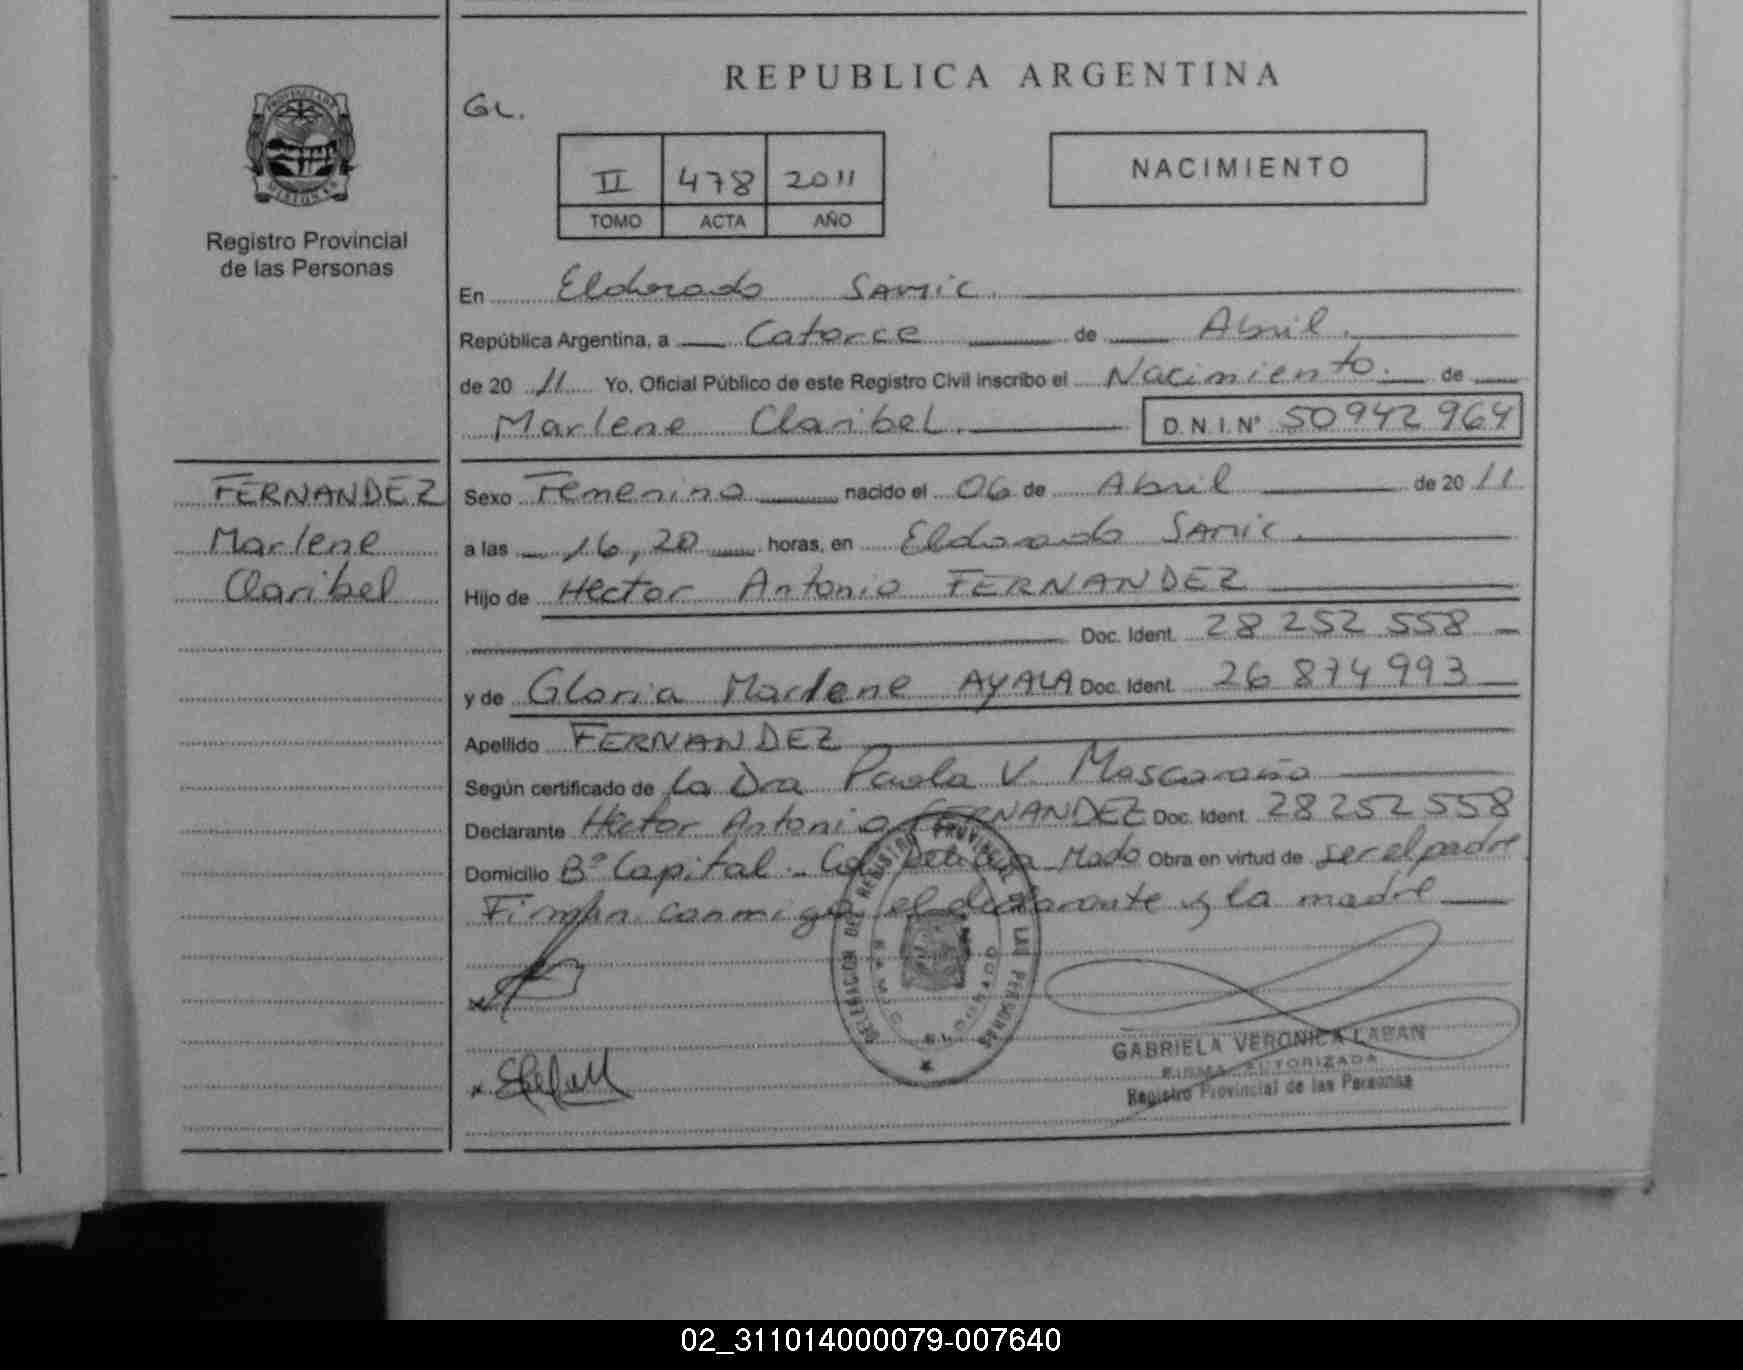 REPUBLICA ARGENTINA
GL.
II 478 2011
TOMO ACTA AÑO
NACIMIENTO
Registro Provincial
de las Personas
En Eldorado SAMIC.
República Argentina, a Catorce de Abril.
de 20 11 Yo, Oficial Público de este Registro Civil inscribo el Nacimiento. de
Marlene Claribel. D. N. I. Nº 50942964
FERNANDEZ
Marlene
Claribel
Sexo Femenino nacido el 06 de Abril de 20 11
a las 16,20 horas, en Eldorado SAMIC.
Hijo de Hector Antonio FERNANDEZ
Doc. Ident. 28 252 558
y de Gloria Marlene AYALA Doc. Ident. 26 874 993
Apellido FERNANDEZ
Según certificado de La Dra Paola V.
Declarante Hector Antonio FERNANDEZ Doc. Ident. 28252558
Domicilio Bº Capital. Mado Obra en virtud de ser el padre
Firman conmigo el declarante y la madre
DELEGACION DEL REGISTRO PROVINCIAL DE LAS PERSONAS
SAMIC ELDORADO
GABRIELA VERONICA LABAN
FIRMA AUTORIZADA
Registro Provincial de las Personas
02_311014000079-007640